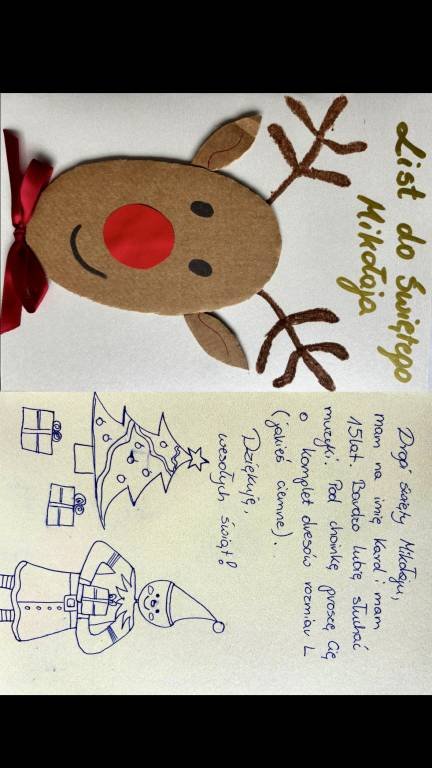 List do Świętego
Mikołaja
Drogi święty Mikołaju,
mam na imię Karol i mam
15 lat. Bardzo lubię słuchać
muzyki. Pod choinkę proszę Cię
o komplet dresów rozmiar L
(jakieś ciemne).
Dziękuję,
wesołych świąt!